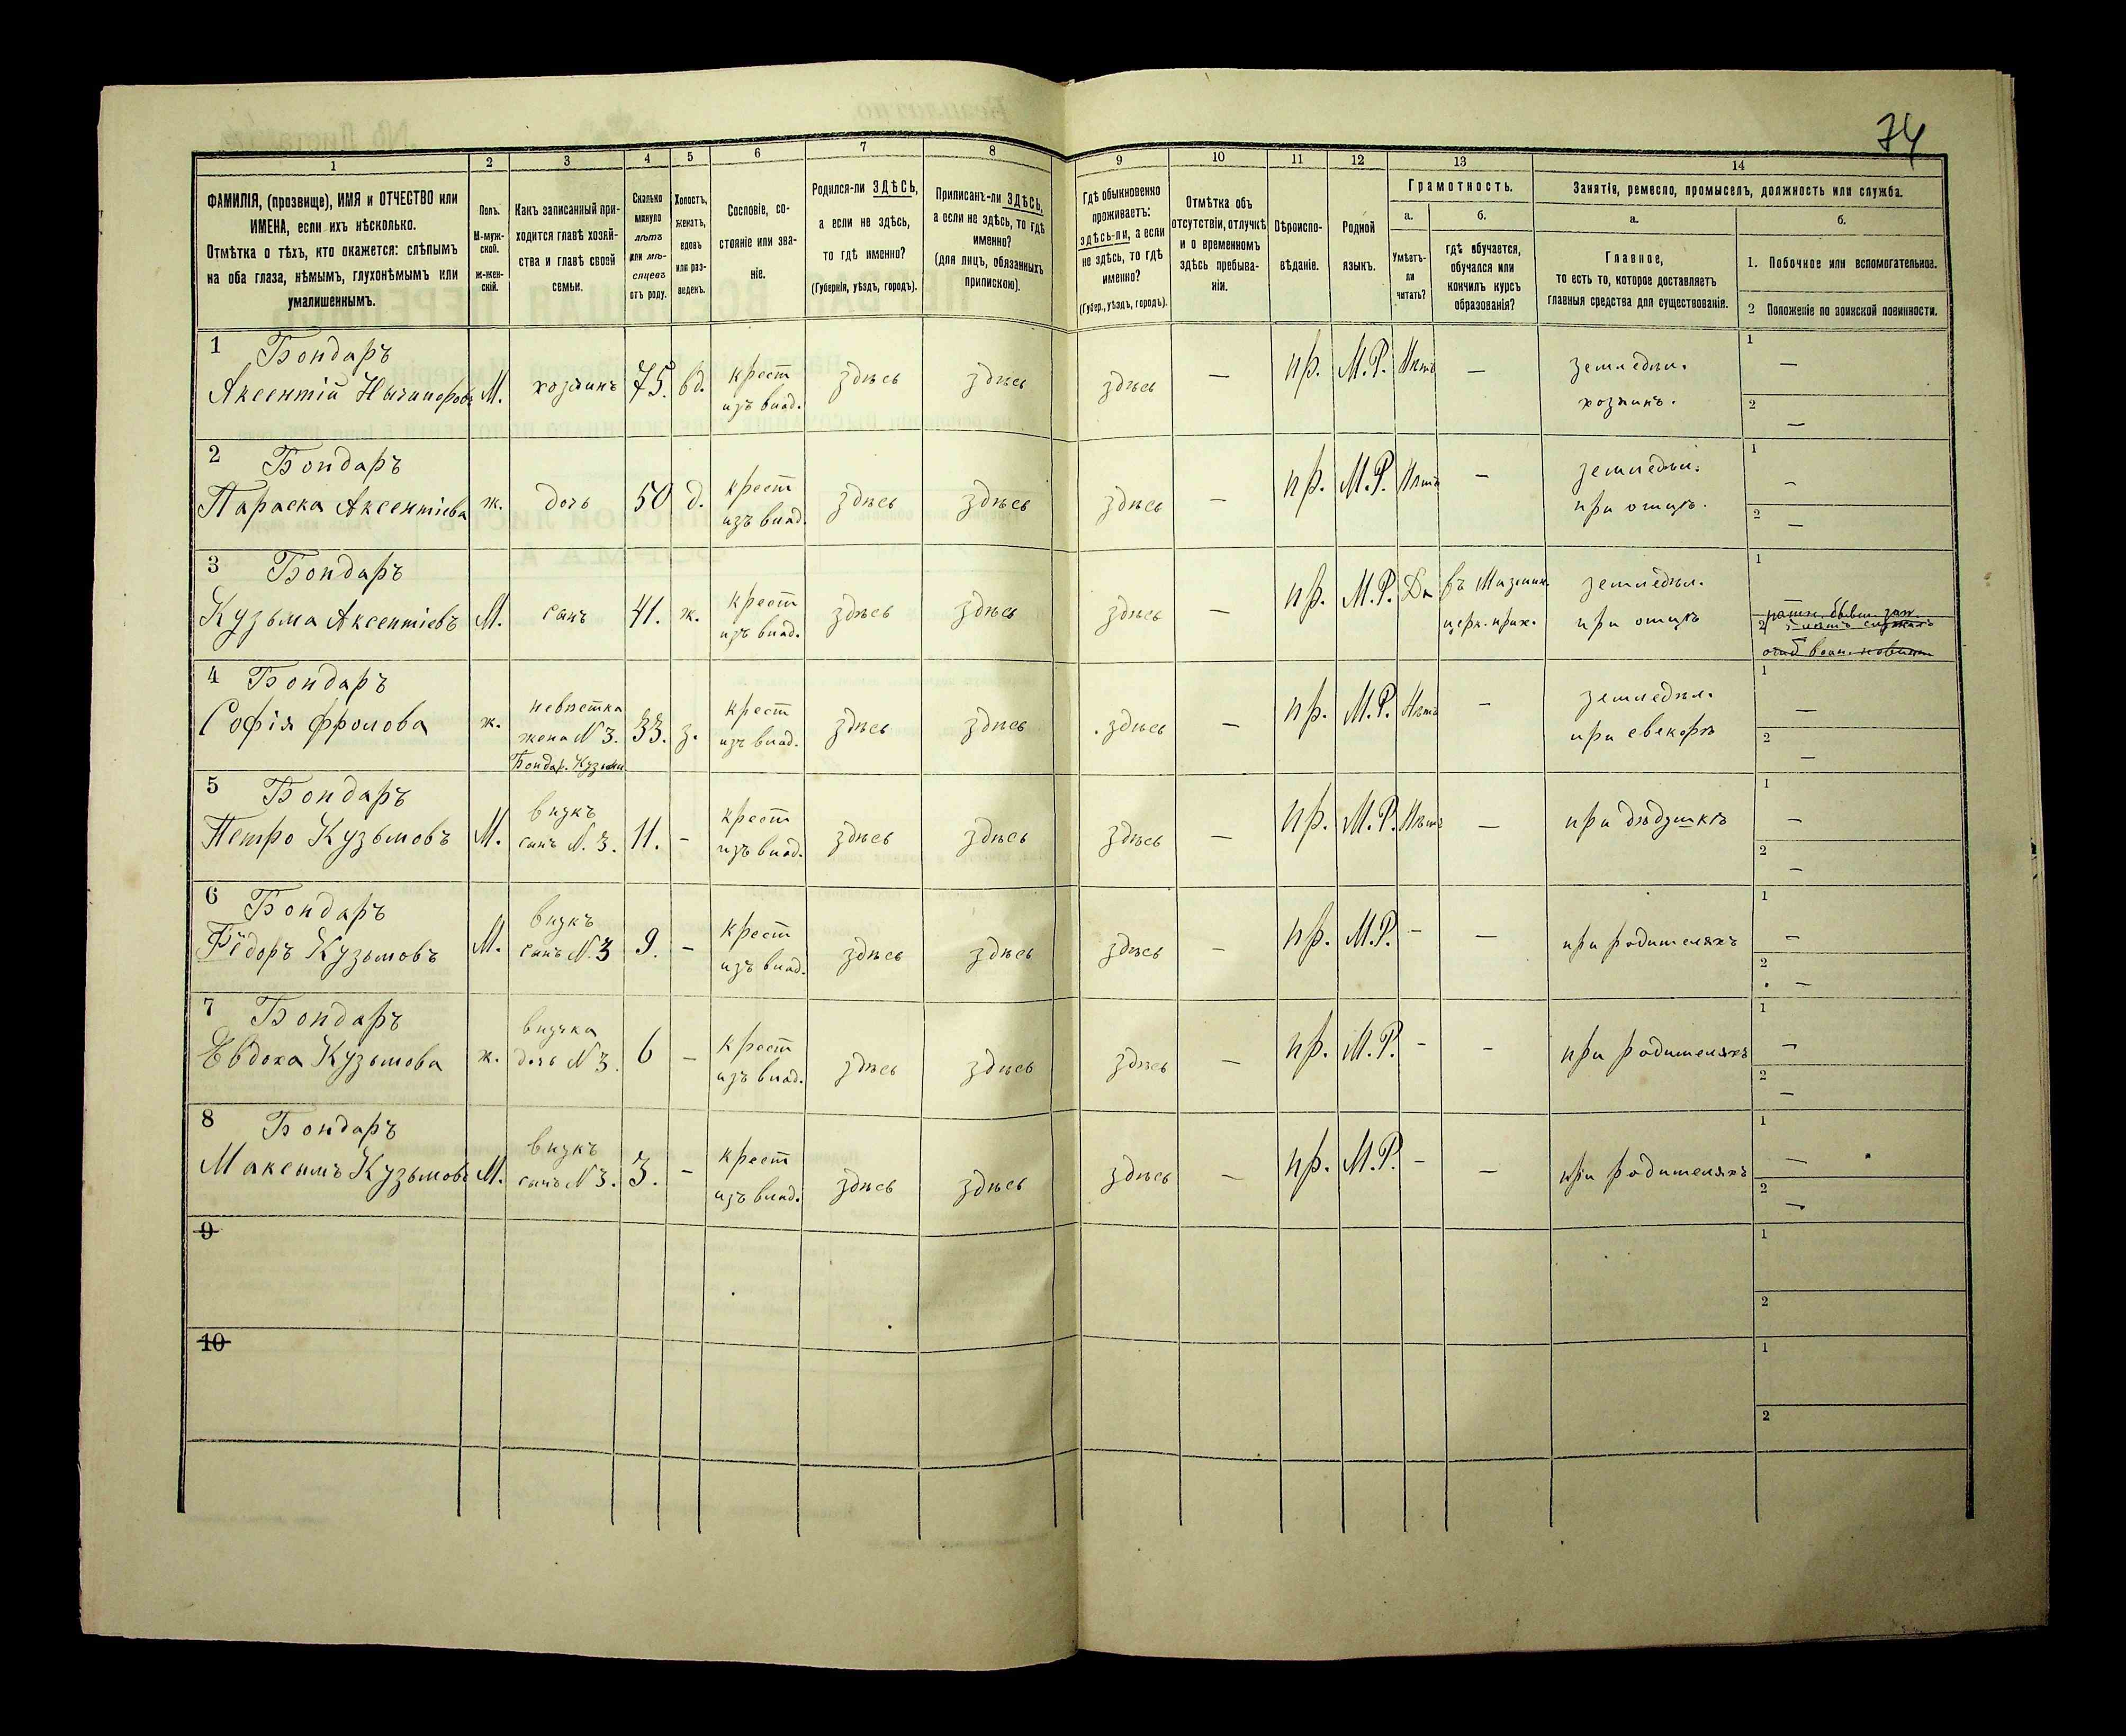 74
1 2 3 4 5 6 7 8 9 10 11 12 13 14
ФАМИЛІЯ, (прозвище), ИМЯ и ОТЧЕСТВО или
ИМЕНА, если ихъ нѣсколько.
Отмѣтка о тѣхъ, кто окажется: слѣпымъ
на оба глаза, нѣмымъ, глухонѣмымъ или
умалишеннымъ.
Полъ.
М-муж-
ской.
Ж-жен-
скій.
Какъ записанный при-
ходится главѣ хозяй-
ства и главѣ своей
семьи.
Сколько
минуло
лѣтъ
или мѣ-
сяцевъ
отъ роду.
Холостъ,
женатъ,
вдовъ
или раз-
веденъ.
Сословіе, со-
стояніе или зва-
ніе.
Родился-ли ЗДѢСЬ,
а если не здѣсь,
то гдѣ именно?
(Губернія, уѣздъ, городъ).
Приписанъ-ли ЗДѢСЬ,
а если не здѣсь, то гдѣ
именно?
(для лицъ, обязанныхъ
припискою).
Гдѣ обыкновенно
проживаетъ:
здѣсь-ли, а если
не здѣсь, то гдѣ
именно?
(Губер., уѣздъ, городъ).
Отмѣтка объ
отсутствіи, отлучкѣ
и о временномъ
здѣсь пребыва-
ніи.
Вѣроиспо-
вѣданіе.
Родной
языкъ.
Грамотность.
а.
Умѣетъ-
ли
читать?
б.
гдѣ обучается,
обучался или
кончилъ курсъ
образованія?
Занятія, ремесло, промыселъ, должность или служба.
а.
Главное,
то есть то, которое доставляетъ
главныя средства для существованія.
б.
1. Побочное или вспомогательное.
2 Положеніе по воинской повинности.
1 Бондаръ крест земледѣл. 1 —
Аксентій Ничипоровъ М. хозяинъ 75. вд. изъ влад. здѣсь здѣсь здѣсь — пр. М.Р. Нѣтъ — хозяинъ. 2 —
2 Бондаръ крест земледѣл. 1 —
Параска Аксентіева ж. дочь 50 д. изъ влад. здѣсь здѣсь здѣсь — пр. М.Р. Нѣтъ — при отцѣ. 2 —
3 Бондаръ крест въ земледѣл. 1
Кузьма Аксентіевъ М. сынъ 41. ж. изъ влад. здѣсь здѣсь здѣсь — пр. М.Р. Да церк. прих. при отцѣ 2
4 Бондаръ невѣстка крест земледѣл. 1 —
Софія Фролова ж. жена N 3. 33. з. изъ влад. здѣсь здѣсь здѣсь — пр. М.Р. Нѣтъ — при свекорѣ 2 —
Бондар. Кузьмы
5 Бондаръ внукъ крест 1 —
Петро Кузьмовъ М. сынъ N. 3. 11. - изъ влад. здѣсь здѣсь здѣсь — пр. М.Р. Нѣтъ — при дѣдушкѣ 2 —
6 Бондаръ внукъ крест 1 —
Фёдоръ Кузьмовъ М. сынъ N. 3 9. - изъ влад. здѣсь здѣсь здѣсь — пр. М.Р. - — при родителяхъ 2 —
7 Бондаръ внучка крест 1 —
Евдоха Кузьмова ж. дочь N 3. 6 - изъ влад. здѣсь здѣсь здѣсь — пр. М.Р. - - при родителяхъ 2 —
8 Бондаръ внукъ крест 1 —
Максимъ Кузьмовъ М. сынъ N 3. 3. - изъ влад. здѣсь здѣсь здѣсь — пр. М.Р. - — при родителяхъ 2 —
9 1
2
10 1
2